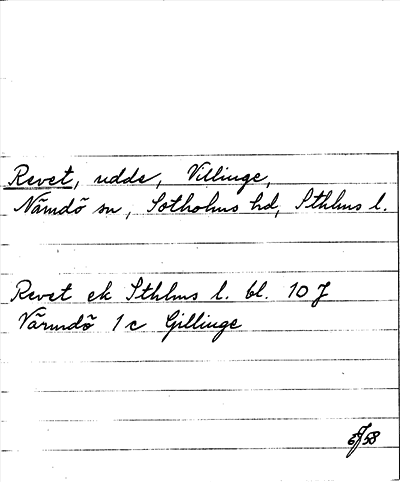 Revet, udde, Villinge,
Nämdö sn, Sotholms hd, Sthlms l.
Revet ek Sthlms l. bl. 10 J
Värmdö 1 c Gillinge